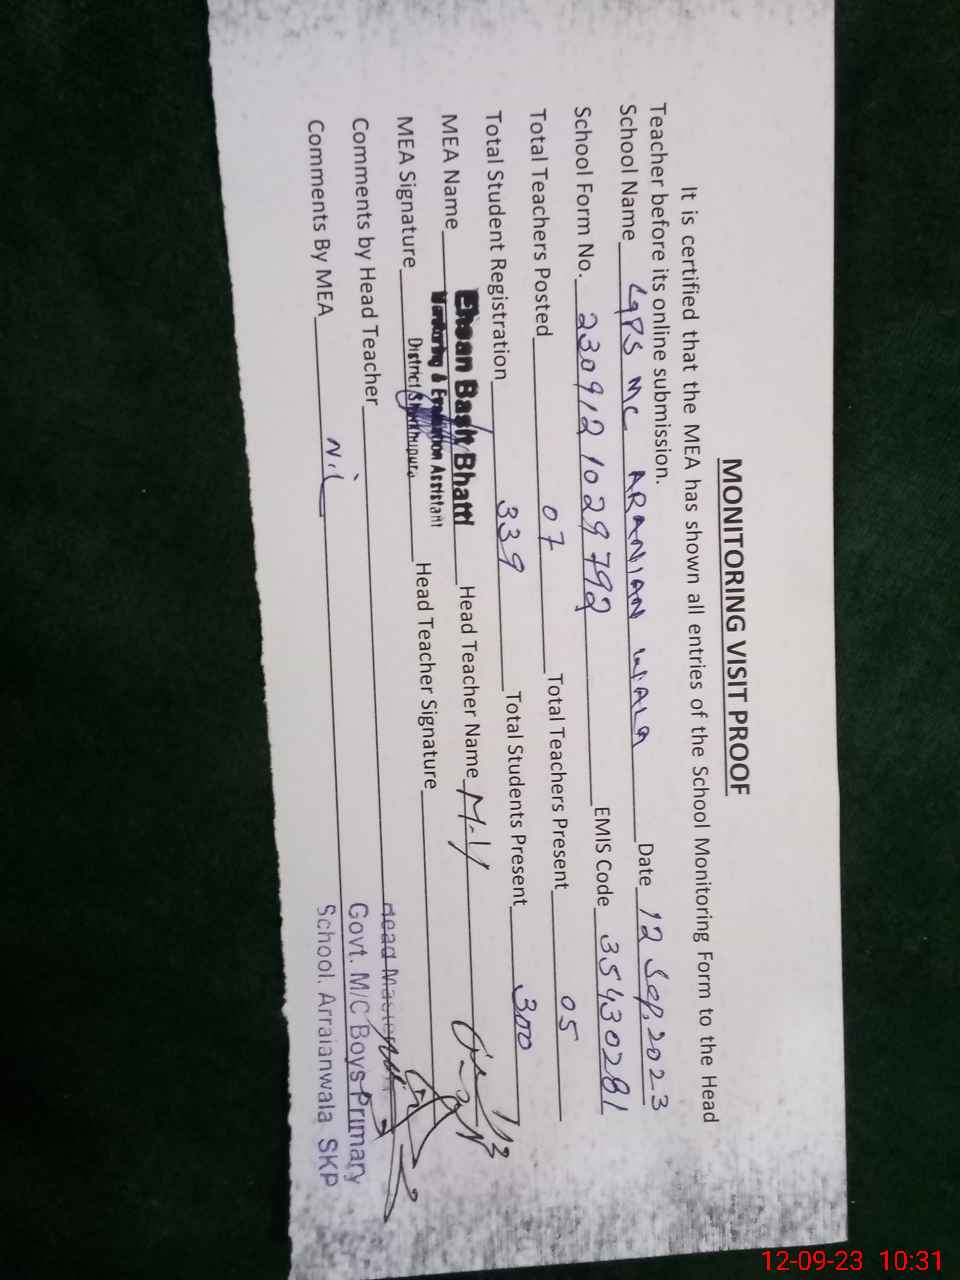 MONITORING VISIT PROOF
It is certified that the MEA has shown all entries of the School Monitoring Form to the Head
Teacher before its online submission.
School Name GPS MC ARANIAN WALA Date 12 Sep, 2023
School Form No. 2309121029792 EMIS Code 35430281
Total Teachers Posted 07 Total Teachers Present 05
Total Student Registration 339 Total Students Present 300
MEA Name Ehsan Basit Bhatti Head Teacher Name
Monitoring & Evaluation Assistant
District Sheikhupura
MEA Signature Head Teacher Signature
Comments by Head Teacher
Head Master
Comments By MEA Nil
Govt. M/C Boys Primary
School. Arraianwala SKP
12-09-23 10:31